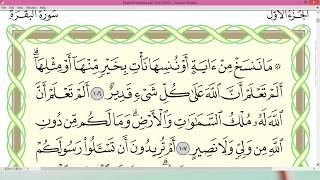 الجزء الأول سورة البقرة
۞ مَا نَنسَخْ مِنْ ءَايَةٍ أَوْ نُنسِهَا نَأْتِ بِخَيْرٍ مِّنْهَا أَوْ مِثْلِهَآ ۗ
أَلَمْ تَعْلَمْ أَنَّ ٱللَّهَ عَلَىٰ كُلِّ شَىْءٍ قَدِيرٌ ١٠٦ أَلَمْ تَعْلَمْ أَنَّ
ٱللَّهَ لَهُۥ مُلْكُ ٱلسَّمَـٰوَٰتِ وَٱلْأَرْضِ ۗ وَمَا لَكُم مِّن دُونِ
ٱللَّهِ مِن وَلِىٍّ وَلَا نَصِيرٍ ١٠٧ أَمْ تُرِيدُونَ أَن تَسْـَٔلُوا۟ رَسُولَكُمْ